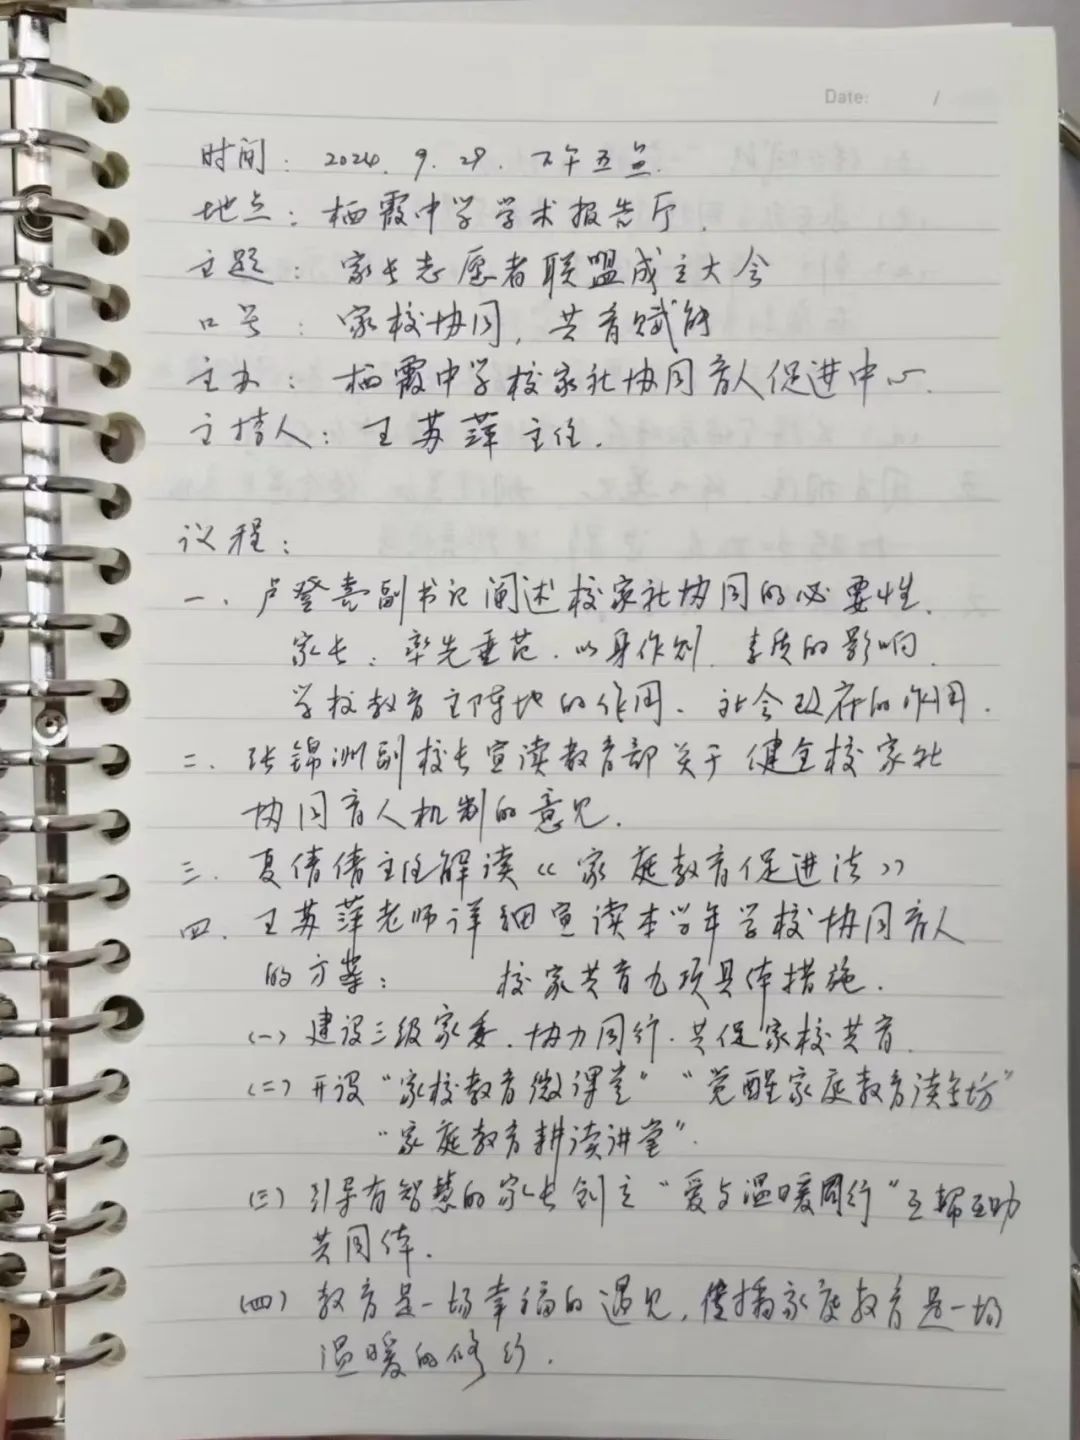 Date: /
时间：2024.9.29.下午五点.
地点：栖霞中学学术报告厅.
主题：家长志愿者联盟成立大会
口号：家校协同，共育赋能
主办：栖霞中学校家社协同育人促进中心.
主持人：王苏萍主任.
议程：
一、卢登喜副书记阐述校家社协同的必要性.
家长：率先垂范.以身作则.素质的影响.
学校教育主阵地的作用、社会政府的作用.
二、张锦洲副校长宣读教育部关于健全校家社
协同育人机制的意见.
三、夏倩倩主任解读《家庭教育促进法》
四、王苏萍老师详细宣读本学年学校协同育人
的方案：校家共育九项具体措施.
(一)建设三级家委.协力同行.共促家校共育.
(二)开设“家校教育微课堂”“觉醒家庭教育读书坊”
“家庭教育耕读讲堂”.
(三)引导有智慧的家长创立“爱与温暖同行”互帮互助
共同体.
(四)教育是一场幸福的遇见,传播家庭教育是一场
温暖的修行.